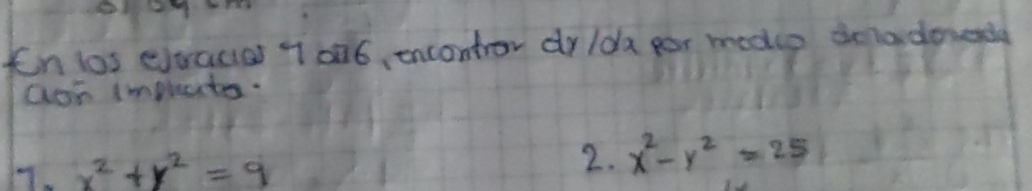 En los ejercicios 1 al 16, encontrar dy/dx por medio de la
ción implicita.
1. x² + y² = 9
2. x² - y² = 25